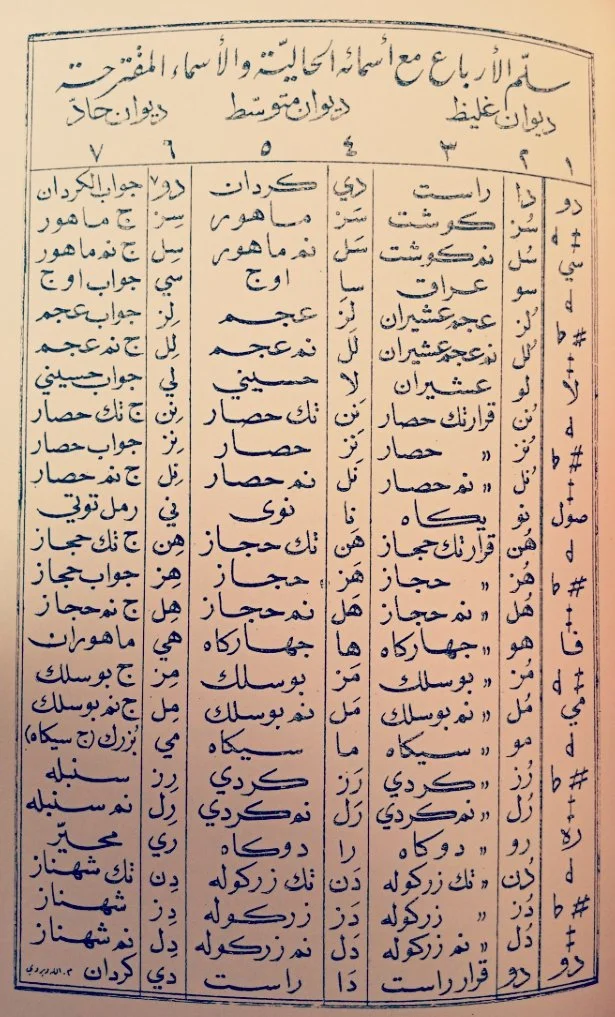 سلّم الأرباع مع أسمائه الحاليّة والأسماء المقترحة
ديوان غليظ ديوان متوسّط ديوان حادّ
١ ٢ ٣ ٤ ٥ ٦ ٧
دو دا راست دي كردان دو٧ جواب الكردان
سُز كوشت سَز ماهور سِز ج ماهور
سُل نم كوشت سَل نم ماهور سِل ج نم ماهور
سي سو عراق سا اوج سي جواب اوج
لُز عجم عشيران لَز عجم لِز جواب عجم
# b لُل نم عجم عشيران لَل نم عجم لِل ج نم عجم
لا لو عشيران لا حسيني لي جواب حسيني
نُن قرار تك حصار نَن تك حصار نِن ج تك حصار
# b نُز " حصار نَز حصار نِز جواب حصار
نُل " نم حصار نَل نم حصار نِل ج نم حصار
صول نو يكاه نا نوى ني رمل توتي
هُن قرار تك حجاز هَن تك حجاز هِن ج تك حجاز
# b هُز " حجاز هَز حجاز هِز جواب حجاز
هُل " نم حجاز هَل نم حجاز هِل ج نم حجاز
فا هو " جهاركاه ها جهاركاه هي ماهوران
مُز " بوسلك مَز بوسلك مِز ج بوسلك
مي مُل " نم بوسلك مَل نم بوسلك مِل ج نم بوسلك
مو " سيكاه ما سيكاه مي بُزرك (ج سيكاه)
# b رُز " كردي رَز كردي رِز سنبله
رُل " نم كردي رَل نم كردي رِل نم سنبله
ره رو " دوكاه را دوكاه ري محيّر
دُن " تك زركوله دَن تك زركوله دِن تك شهناز
# b دُز " زركوله دَز زركوله دِز شهناز
دُل " نم زركوله دَل نم زركوله دِل نم شهناز
دو دو قرار راست دَا راست دي كردان